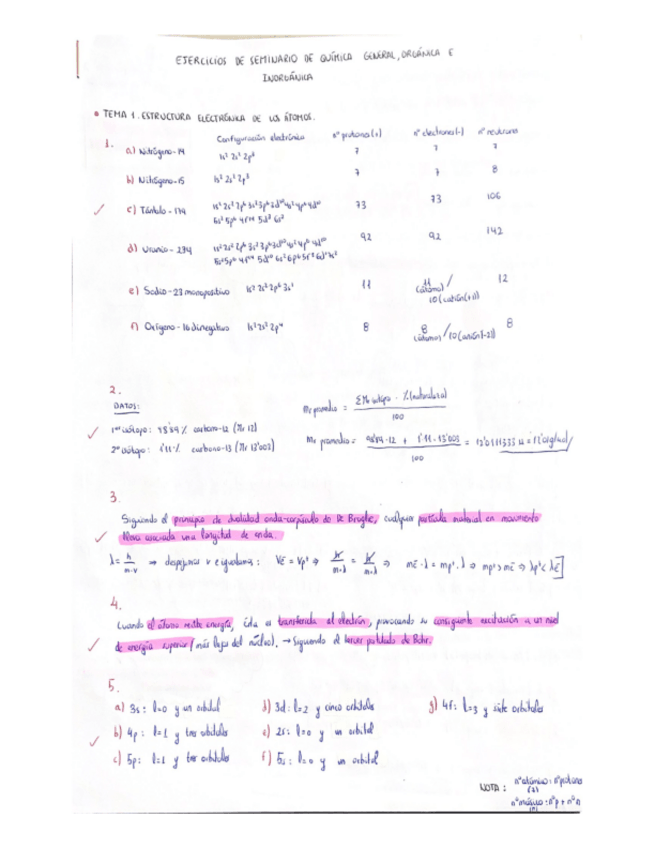 EJERCICIOS DE SEMINARIO DE QUÍMICA GENERAL, ORGÁNICA E
INORGÁNICA
• TEMA 1. ESTRUCTURA ELECTRÓNICA DE LOS ÁTOMOS.
1. Configuración electrónica nº protones(+) nº electrones(-) nº neutrones
a) Nitrógeno-14 1s² 2s² 2p³ 7 7 7
b) Nitrógeno-15 1s² 2s² 2p³ 7 7 8
✓ c) Tántalo-179 1s² 2s² 2p⁶ 3s² 3p⁶ 3d¹⁰ 4s² 4p⁶ 4d¹⁰ 73 73 106
5s² 5p⁶ 4f¹⁴ 5d³ 6s²
d) Uranio-234 1s² 2s² 2p⁶ 3s² 3p⁶ 3d¹⁰ 4s² 4p⁶ 4d¹⁰ 92 92 142
5s² 5p⁶ 4f¹⁴ 5d¹⁰ 6s² 6p⁶ 5f³ 6d¹ 7s²
e) Sodio-23 monopositivo 1s² 2s² 2p⁶ 3s¹ 11 11 (átomo) / 10 (catión(+1)) 12
f) Oxígeno-16 dinegativo 1s² 2s² 2p⁴ 8 8 (átomo) / 10 (anión(-2)) 8
2.
DATOS:
Mr promedio = ΣMr isótopo · % (naturaleza) / 100
✓ 1er isótopo: 98'89 % carbono-12 (Mr 12)
2º isótopo: 1'11 % carbono-13 (Mr 13'003)
Mr promedio = 98'89 · 12 + 1'11 · 13'003 / 100 = 12'0111333 u =
3.
Siguiendo el principio de dualidad onda-corpúsculo de De Broglie, cualquier partícula material en movimiento
✓ lleva asociada una longitud de onda.
λ = h / m·v ⇒ despejamos v e igualamos: vē = vp⁺ ⇒ h / m·λ = h / m·λ ⇒ mē·λ = mp⁺·λ ⇒ mp⁺ > mē ⇒ λp⁺ < λē
4.
Cuando el átomo recibe energía, ésta es transferida al electrón, provocando su consiguiente excitación a un nivel
✓ de energía superior (más lejos del núcleo). → Siguiendo el tercer postulado de Bohr.
5.
a) 3s: l=0 y un orbital d) 3d: l=2 y cinco orbitales g) 4f: l=3 y siete orbitales
✓ b) 4p: l=1 y tres orbitales e) 2s: l=0 y un orbital
c) 5p: l=1 y tres orbitales f) 5s: l=0 y un orbital
NOTA: nº atómico: nº protones
(Z)
nº másico: nºp + nºn